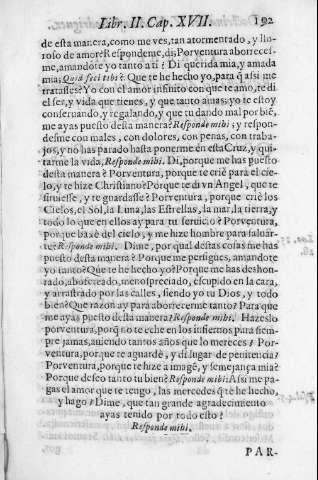 Libr. II. Cap. XVII. 192
de esta manera, como me ves, tan atormentado, y llo-
roso de amor? Respondeme, di, Porventura aborreci-
me, amandote yo tanto a ti? Di querida mia, y amada
mia; Quid feci tibi? Que te he hecho yo, para q̃ assi me
tratasses? Yo con el amor infinito con que te amo, te di
el ser, y vida que tienes, y que tanto amas: yo te estoy
conseruando, y regalando, y que tu dando mal por biẽ,
me ayas puesto desta manera? Responde mihi: y respon-
desme con males, con dolores, con penas, con traba-
jos, y no has parado hasta ponerme en esta Cruz, y qui-
tarme la vida, Responde mihi. Di, porque me has puesto
desta manera? Porventura, porque te criè para el cie-
lo, y te hize Christiano? Porque te di vn Angel, que te
siruiesse, y te guardasse? Porventura, porque criè los
Cielos, el Sol, la Luna, las Estrellas, la mar, la tierra, y
todo lo que en ellos ay para tu seruicio? Porventura,
porque baxè del cielo, y me hize hombre para saluar-
te? Responde mihi. Dime, por qual destas cosas me has
puesto desta manera? Porque me persigues, amandote
yo tanto? Que te he hecho yo? Porque me has deshon-
rado, aborrecado, menospreciado, escupido en la cara,
y arrastrado por las calles, siendo yo tu Dios, y todo
bien? Que razon ay para aborrecerme tanto? Para que
me ayas puesto desta manera? Responde mihi. Hazeslo
porventura, porq̃ no te eche en los infiernos para siem-
pre jamas, auiendo tantos años que lo mereces? Por-
ventura, porque te aguardè, y di lugar de penitencia?
Porventura, porque te hize a imagẽ, y semejança mia?
Porque deseo tanto tu bien? Responde mihi: Assi me pa-
gas el amor que te tengo, las mercedes q̃ te he hecho,
y hago? Dime, que tan grande agradecimiento
ayas tenido por todo esto?
Responde mihi.
PAR-